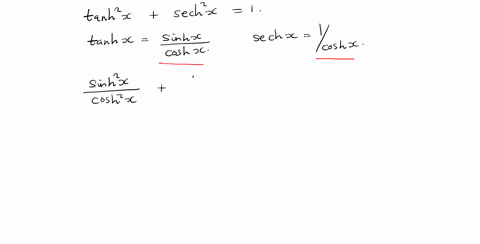 tanh²x + sech²x = 1.
tanhx = sinhx/coshx. sechx = 1/coshx.
sinh²x/cosh²x +